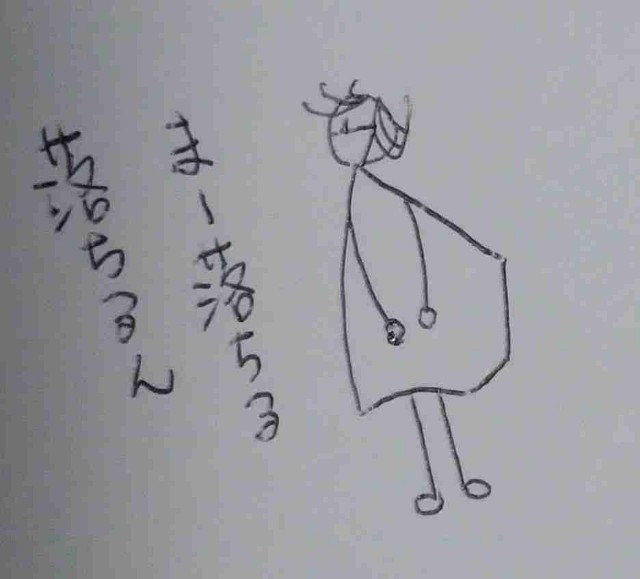 まー落ちる
落ちるて